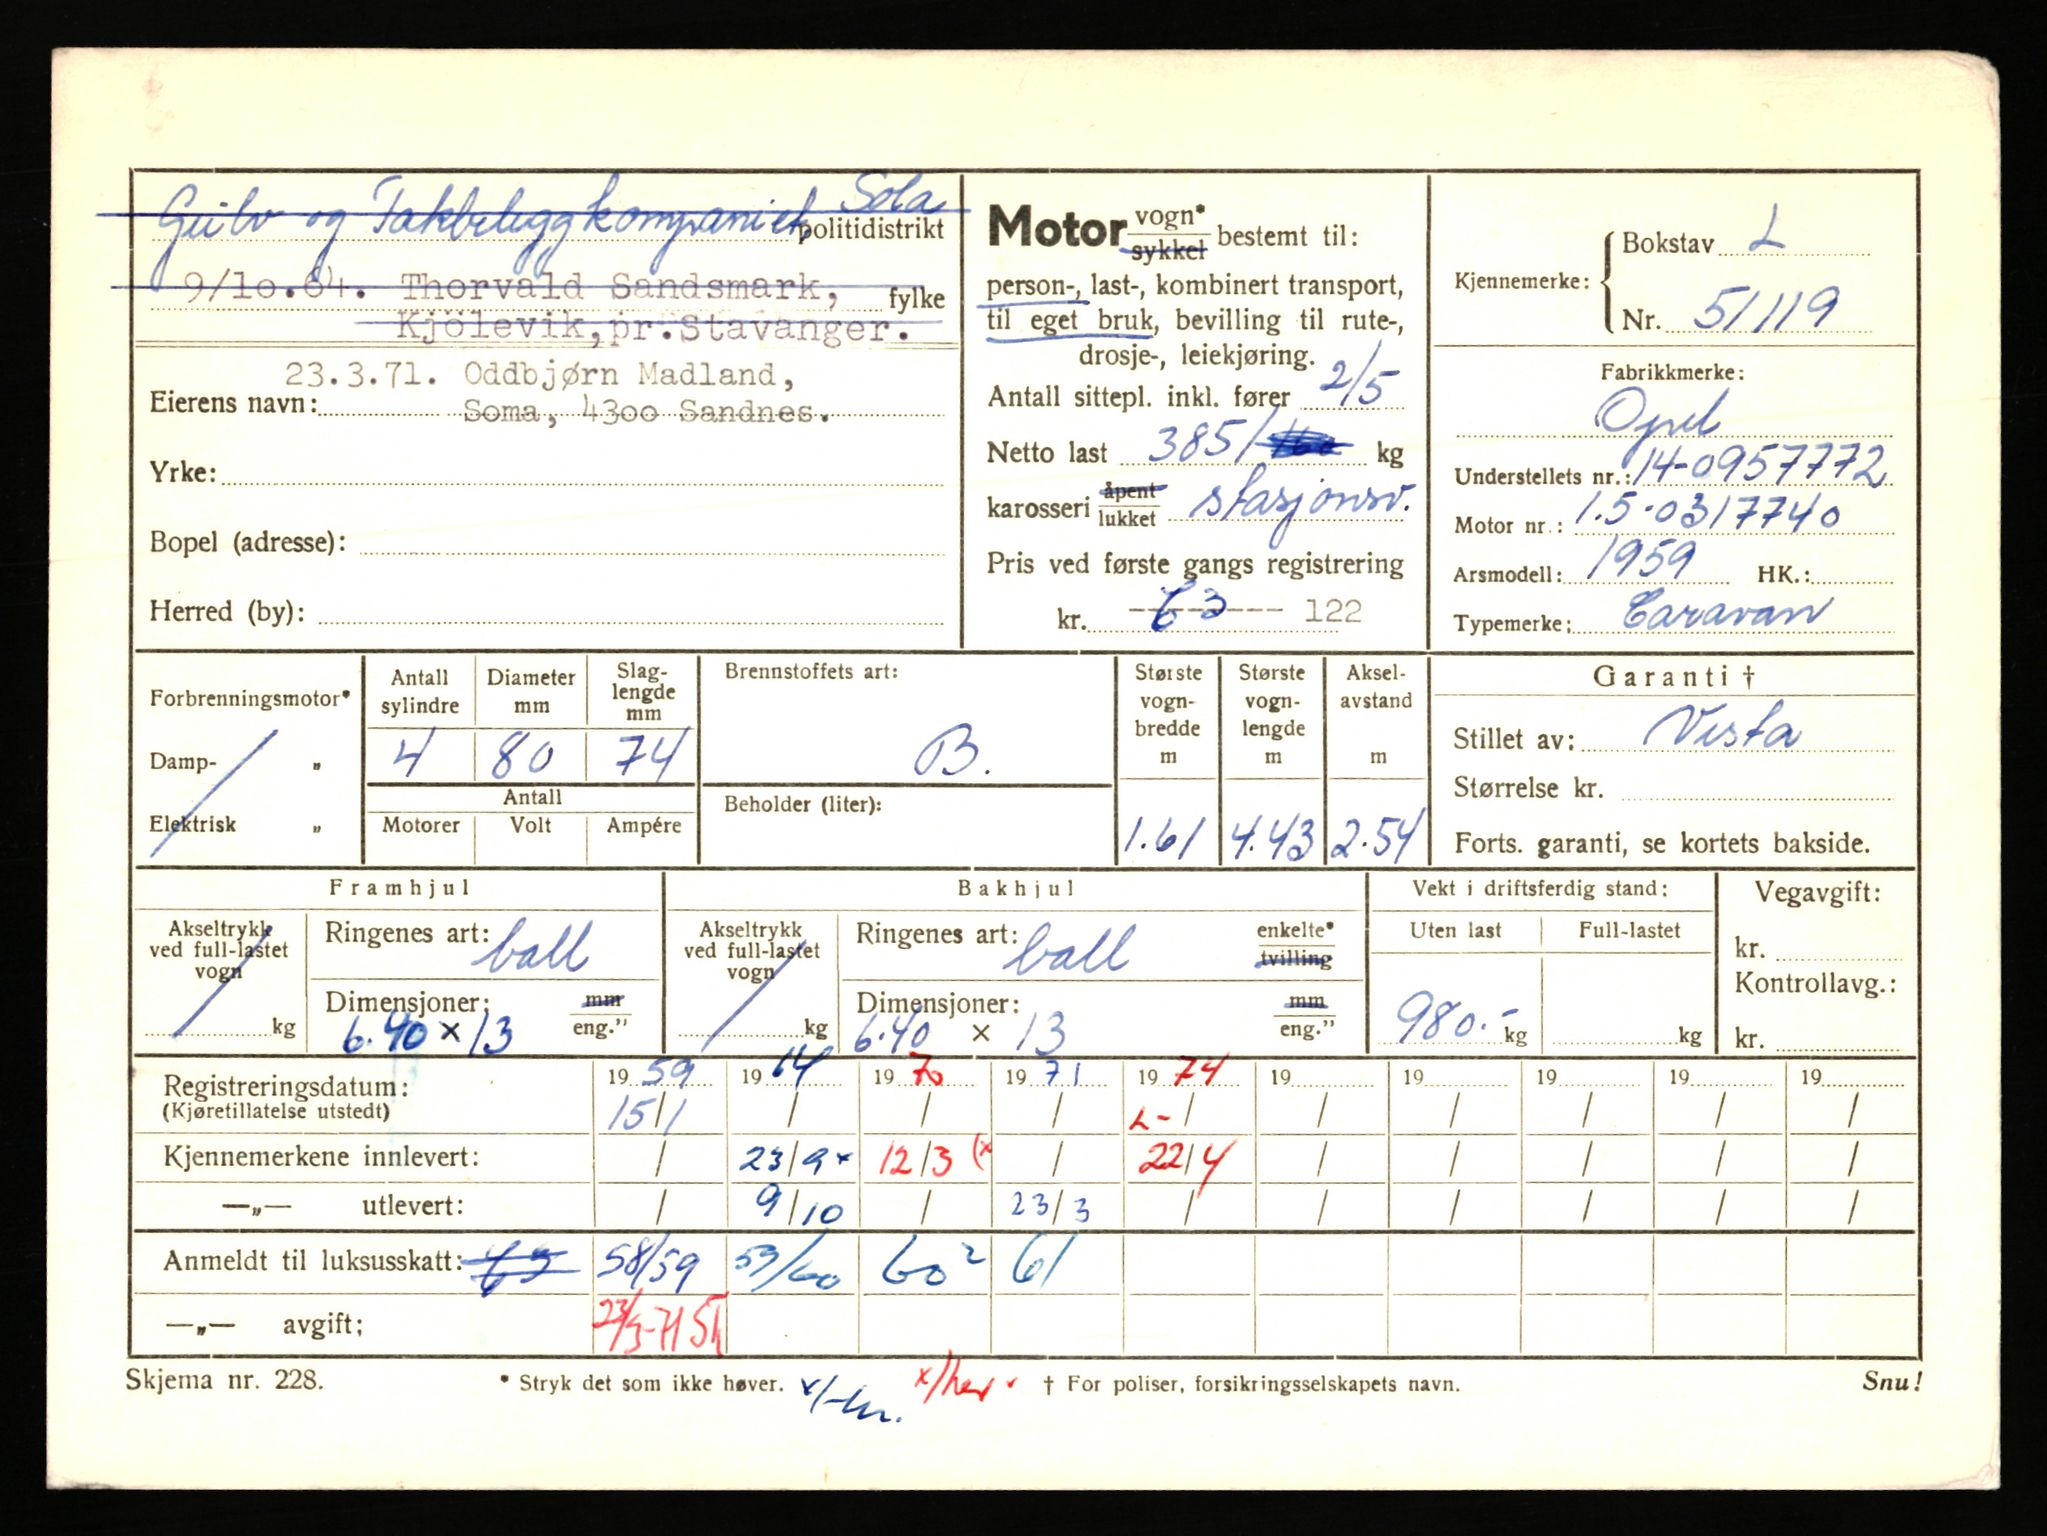 Gulv og Takbeleggkompaniet, Sola
politidistrikt
9/10.64. Thorvald Sandsmark, fylke
Kjölevik, pr. Stavanger.
23.3.71. Oddbjørn Madland,
Eierens navn: Soma, 4300 Sandnes.
Yrke:
Bopel (adresse):
Herred (by):
Motor vogn* / sykkel bestemt til:
person-, last-, kombinert transport,
til eget bruk, bevilling til rute-,
drosje-, leiekjøring.
Antall sittepl. inkl. fører 2/5
Netto last 385/ kg
karosseri åpent / lukket stasjonsv.
Pris ved første gangs registrering
kr. 63 122
Kjennemerke: Bokstav L
Nr. 51119
Fabrikkmerke:
Opel
Understellets nr.: 14-0957772
Motor nr.: 1.5-0317740
Arsmodell: 1959 HK.:
Typemerke: Caravan
Forbrenningsmotor*
Damp- „
Elektrisk „
Antall sylindre Diameter mm Slag-lengde mm
4 80 74
Antall
Motorer Volt Ampére
Brennstoffets art:
B.
Beholder (liter):
Største vogn-bredde m Største vogn-lengde m Aksel-avstand m
1.61 4.43 2.54
Garanti †
Stillet av: Vesta
Størrelse kr.
Forts. garanti, se kortets bakside.
Framhjul
Akseltrykk ved full-lastet vogn kg
Ringenes art: ball
Dimensjoner: mm / eng."
6.40 x 13
Bakhjul
Akseltrykk ved full-lastet vogn kg
Ringenes art: ball enkelte* / tvilling
Dimensjoner: mm / eng."
6.40 x 13
Vekt i driftsferdig stand:
Uten last Full-lastet
980.- kg kg
Vegavgift:
kr.
Kontrollavg.:
kr.
Registreringsdatum: 1959 1964 1970 1971 1974 19 19 19 19 19
(Kjøretillatelse utstedt) 15/1 / / / L-/ / / / / /
Kjennemerkene innlevert: / 23/9 x 12/3 (x / 22/4 / / / / /
—„— utlevert: / 9/10 / 23/3 / / / / / /
Anmeldt til luksusskatt: 63 58/59 59/60 60² 61
—„— avgift; 23/3-71
Skjema nr. 228.
* Stryk det som ikke høver. † For poliser, forsikringsselskapets navn.
Snu!